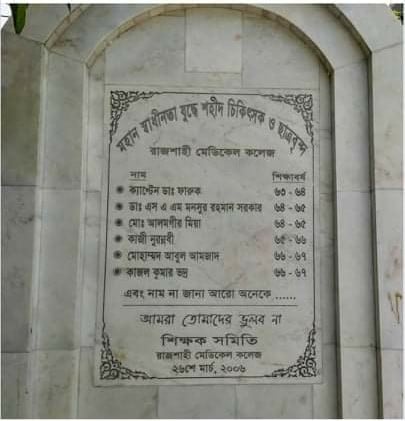 মহান স্বাধীনতা যুদ্ধে শহীদ চিকিৎসক ও ছাত্রবৃন্দ
রাজশাহী মেডিকেল কলেজ
নাম শিক্ষাবর্ষ
ক্যাপ্টেন ডাঃ ফারুক ৬৩ - ৬৪
ডাঃ এস এ এম মনসুর রহমান সরকার ৬৪ - ৬৫
মোঃ আলমগীর মিয়া ৬৪ - ৬৫
কাজী নুরন্নবী ৬৫ - ৬৬
মোহাম্মদ আবুল আমজাদ ৬৬ - ৬৭
কাজল কুমার ভদ্র ৬৬ - ৬৭
এবং নাম না জানা আরো অনেকে ......
আমরা তোমাদের ভুলব না
শিক্ষক সমিতি
রাজশাহী মেডিকেল কলেজ
২৬শে মার্চ, ২০০৬